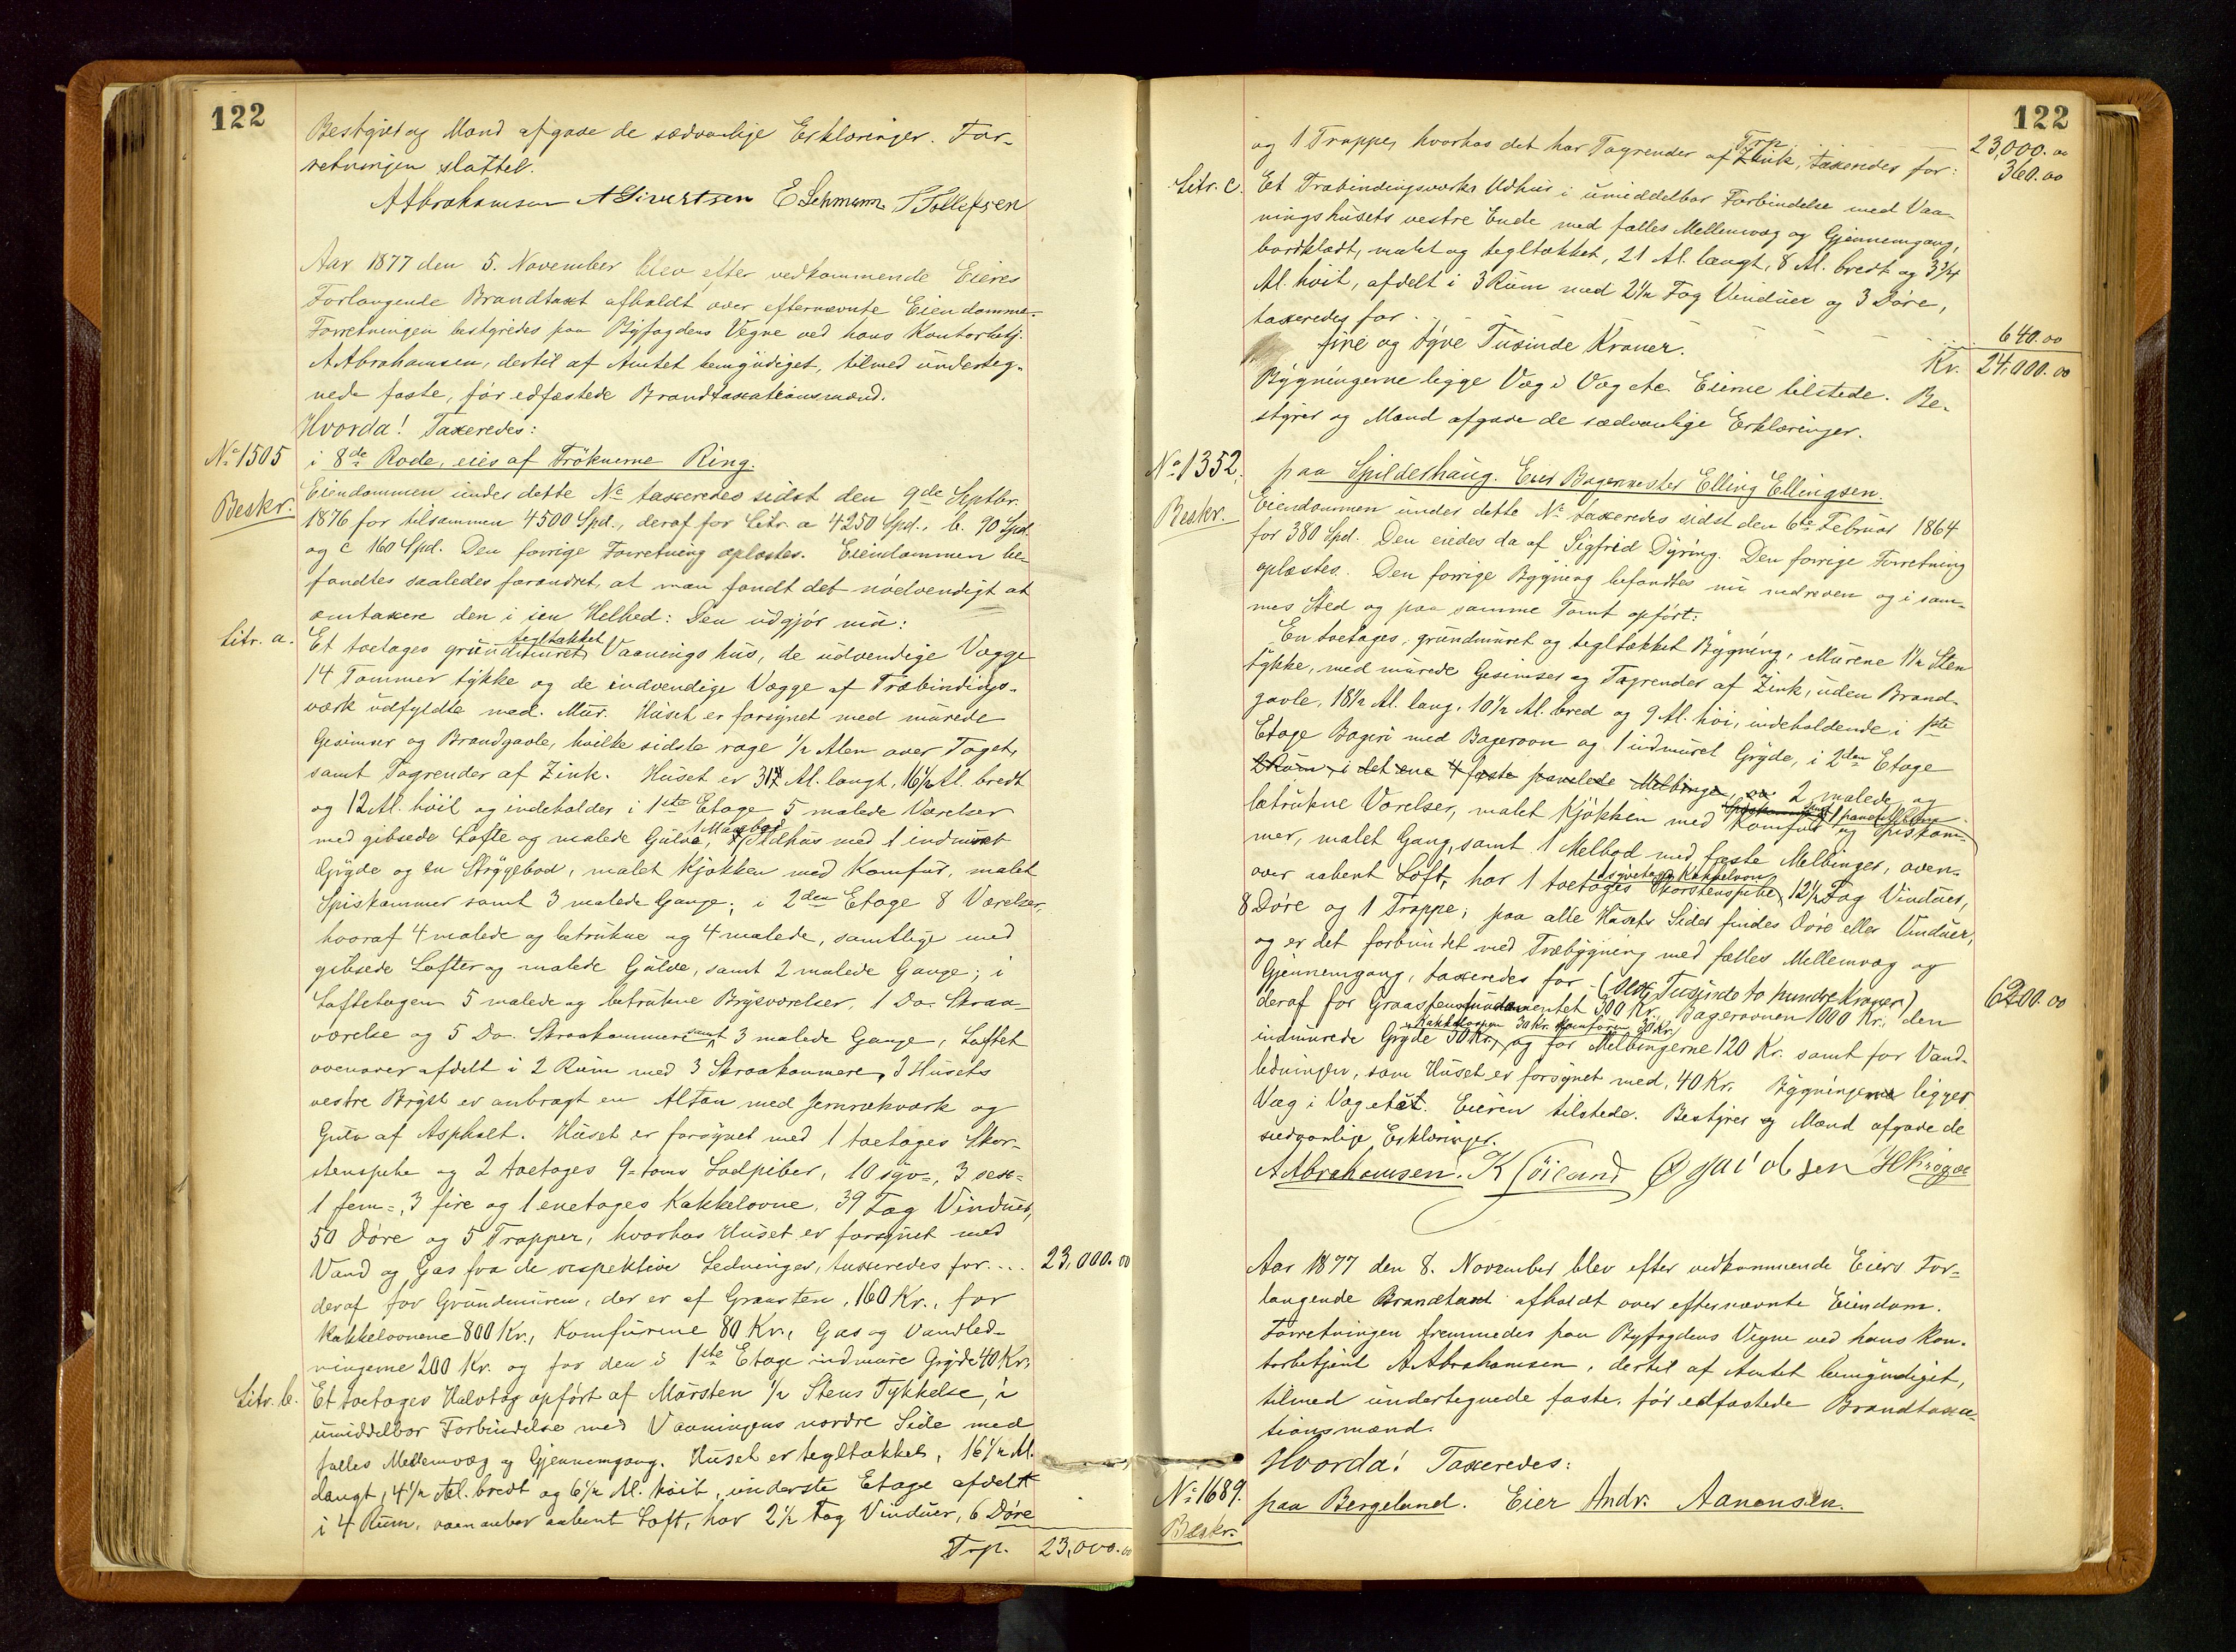 122
Bestyrer og Mænd afgave de sædvanlige Erklæringer. For-
retningen sluttet.
A Abrahamsen A Sivertsen E Lehmann T Tollefsen
Aar 1877 den 5. November blev efter vedkommende Eieres
Forlangende Brandtaxt afholdt over efternævnte Eiendomme.
Forretningen bestyredes paa Byfogdens Vegne ved hans Kontorbetj.
A Abrahamsen, dertil af Amtet bemyndiget, tilmed underteg-
nede faste, før edfæstede Brandtaxationsmænd.
Hvorda! Taxeredes:
No 1505
i 8de Rode, eies af Frøknerne Ring.
Beskr.
Eiendommen under dette No taxeredes sidst den 9de Septbr.
1876 for tilsammen 4500 Spd., deraf for Litr. a 4250 Spd., b. 90 Spd.
og c 160 Spd. Den forrige Forretning oplæstes. Eiendommen be-
fandtes saaledes forandret, at man fandt det nødvendigt at
omtaxere den i sin Helhed: Den udgjør nu:
Litr. a.
Et toetages grundmuret tegltækket Vaaningshus, de udvendige Vægge
14 Tommer tykke og de indvendige Vægge af Træbindings-
værk udfyldte med Mur. Huset er forsynet med murede
Gesimser og Brandgavle, hvilke sidste rage 1/2 Alen over Taget,
samt Tagrender af Zink. Huset er 31 Al. langt, 16 1/2 Al. bredt
og 12 Al. høit og indeholder i 1ste Etage 5 malede Værelser
med gibsede Lofte og malede Gulve, 1 Madbod, Ildhus med 1 indmuret
Gryde og en Strygebod, malet Kjøkken med Komfur, malet
Spiskammer samt 3 malede Gange; i 2den Etage 8 Værelser,
hvoraf 4 malede og betrukne og 4 malede, samtlige med
gibsede Lofter og malede Gulve, samt 2 malede Gange; i
Loftetagen 5 malede og betrukne Brystværelser, 1 Do. Skraa-
værelse og 5 Do. Skraakammere samt 3 malede Gange, Loftet
ovenover afdelt i 2 Rum med 3 Skraakammere, I Husets
vestre Bryst er anbragt en Altan med Jernrækværk og
Gulv af Asphalt. Huset er forsynet med 1 toetages Skor-
stenspibe og 2 toetages 9-toms Lodpiber, 10 syv-, 3 sex-
1 fem-, 3 fire og 1 enetages Kakkelovne, 39 Fag Vinduer,
50 Døre og 5 Trapper, hvorhos Huset er forsynet med
Vand og Gas fra de respektive Ledninger, taxeredes for.... 23,000.00
deraf for Grundmuren, der er af Graasten, 160 Kr., for
Kakkelovnene 800 Kr., Komfurene 80 Kr., Gas og Vandled-
ningerne 200 Kr. og for den i 1ste Etage indmure Gryde 40 Kr.
Litr. b.
Et toetages Halvtag opført af Mursten 1/2 Stens Tykkelse, i
umiddelbar Forbindelse med Vaaningens nordre Side med
fælles Mellemvæg og Gjennemgang. Huset er tegltækket, 16 1/2 Al.
langt, 4 1/2 Al. bredt og 6 1/2 Al. høit, underste Etage afdelt
i 4 Rum, ovenover aabent Loft, har 2 1/2 Fag Vinduer, 6 Døre
Trp. 23,000.00
122
Trp. 23,000.00
og 1 Trappe, hvorhos det har Tagrender af Zink, taxeredes for: 360.00
Litr. c.
Et Træbindingsværks Udhus i umiddelbar Forbindelse med Vaa-
ningshusets vestre Ende med fælles Mellemvæg og Gjennemgang,
bordklædt, malet og tegltækket, 21 Al. langt, 8 Al. bredt og 3 3/4
Al. høit, afdelt i 3 Rum med 2 1/2 Fag Vinduer og 3 Døre,
taxeredes for . . . . . . . . 640.00
fire og tyve Tusinde Kroner. Kr. 24,000.00
Bygningerne ligge Væg i Væg etc. Eierne tilstede. Be-
styrer og Mænd afgave de sædvanlige Erklæringer.
No 1352.
paa Spilderhaug. Eier Bagermester Elling Ellingsen.
Beskr.
Eiendommen under dette No taxeredes sidst den 6te Februar 1864
for 380 Spd. Den eiedes da af Sigfrid Dyring. Den forrige Forretning
oplæstes. Den forrige Bygning befandtes nu nedreven og i sam-
mes Sted og paa samme Tomt opført:
En toetages, grundmuret og tegltækket Bygning, Murene 1 1/2 Sten
tykke, med murede Gesimser og Tagrender af Zink, uden Brand-
gavle, 18 1/2 Al. lang, 10 1/2 Al. bred og 9 Al. høi, indeholdende i 1ste
Etage Bageri med Bagerovn og 1 indmuret Gryde, i 2den Etage
2 Rum, i det ene 4 faste Melbinger, 2 malede og
betrukne Værelser, malet Kjøkken med Komfur og Spiskam-
mer, malet Gang, samt 1 Melbod med faste Melbinger, oven-
over aabent Loft, har 1 toetages Skorstenspibe, 12 1/2 Fag Vinduer,
8 Døre og 1 Trappe; paa alle Husets Sider findes Døre eller Vinduer,
og er det forbundet med Træbygning med fælles Mellemvæg og
Gjennemgang, taxeredes for (sex Tusinde to hundre Kroner) 6200.00
deraf for Graastensfundamentet 300 Kr. Bagerovnen 1000 Kr., den
indmurede Gryde 30 Kr., Kakkelovnen 30 Kr. Komfuren 30 Kr. og for Melbingerne 120 Kr. samt for Vand-
ledningen, som Huset er forsynet med, 40 Kr. Bygningerne ligger
Væg i Væg etc. Eieren tilstede. Bestyrer og Mænd afgave de
sædvanlige Erklæringer.
A Abrahamsen. K Høiland Jacobsen
Aar 1877 den 8. November blev efter vedkommende Eiers For-
langende Brandtaxt afholdt over efternævnte Eiendom.
Forretningen fremmedes paa Byfogdens Vegne ved hans Kon-
torbetjent A Abrahamsen, dertil af Amtet bemyndiget,
tilmed undertegnede faste, før edfæstede Brandtaxa-
tionsmænd.
Hvorda! Taxeredes:
No 1689.
paa Bergeland. Eier Andr. Aanensen.
Beskr.